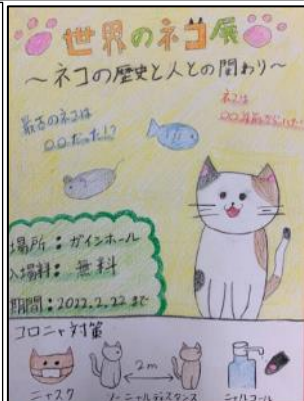 世界のネコ展
～ネコの歴史と人との関わり～
最古のネコは
〇〇だった!?
ネコは
場所：ガインホール
入場料：無料
期間：2022.2.22まで
コロニャ対策
2m
ニャスク
ソーニャルディスタンス
ニャルコール